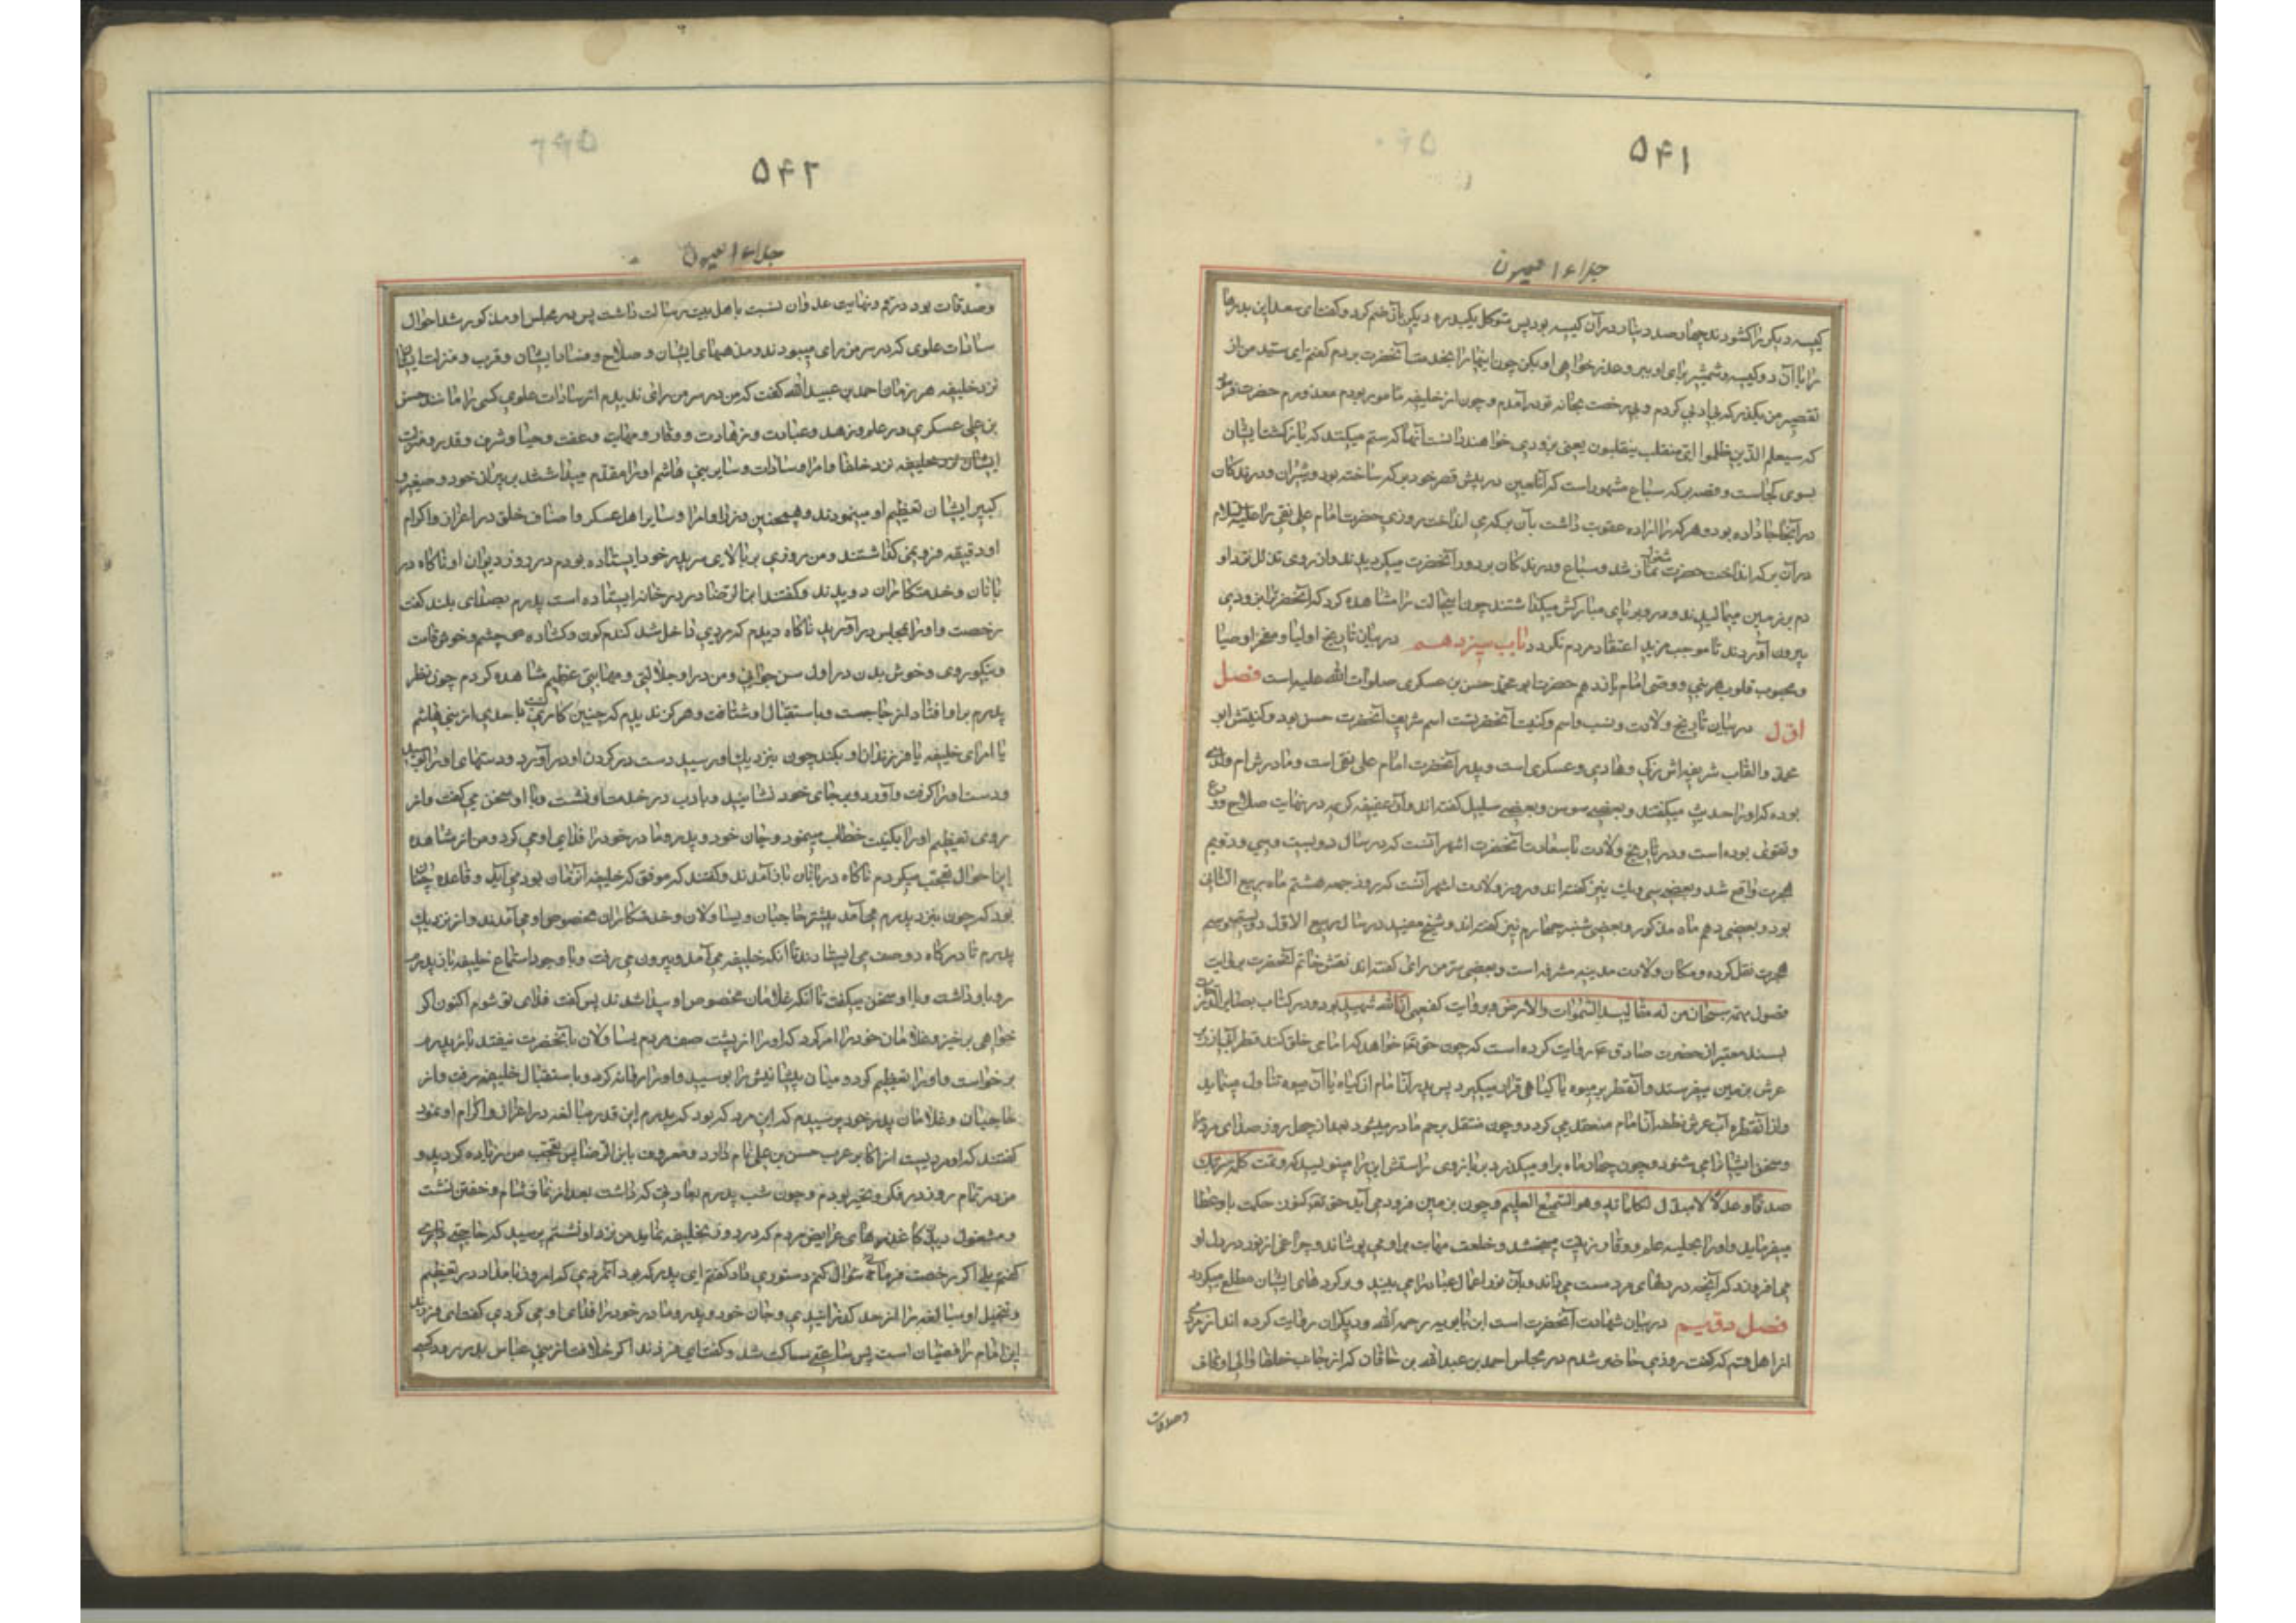 ۵۴۱
جلاء العیون
کیسه دیکر را کشودند چهار صد دینار در آن کیسه بود پس متوکل یکبدره دیکر بآن ضم کرد و کفت ای سعد این بدره
را با آن دو کیسه و شمشیر برای او ببر و عذر خواهی او بکن چون اینها را بخدمت آنحضرت بردم کفتم ای سید من از
تقصیر من بکذر که بی ادبی کردم و بی رخصت بخانه تو در آمدم و چون از خلیفه مامور بودم معذورم حضرت فرمود
که سیعلم الذین ظلموا ای منقلب ینقلبون یعنی بزودی خواهند دانست آنها که ستم میکنند که بازکشت ایشان
بسوی کجاست و قصه برکه سباع مشهور است که آنلعین در پیش قصر خود برکه ساخته بود و شیران و درندکان
در آنجا جا داده بود و هر که را اراده عقوبت داشت بآن برکه می انداخت روزی حضرت امام علی نقی را علیه السلام
در آن برکه انداخت حضرت مشغول نماز شد و سباع و درندکان بر دور آنحضرت میکردیدند و از روی تذلل نزد او
دم بر زمین میمالیدند و رو بر پای مبارکش میکذاشتند چون اینحالت را مشاهده کرد که آنحضرت را بزودی
بیرون آوردند تا موجب مزید اعتقاد مردم نکردد باب سیزدهم در بیان تاریخ اولیا و مفخر اوصیا
و محبوب قلوب هر نبی و وصی امام یازدهم حضرت ابو محمد حسن بن عسکری صلوات الله علیه است فصل
اول در بیان تاریخ ولادت و نسب و اسم و کنیت آنحضرتست اسم شریف آنحضرت حسن بود و کنیتش ابو
محمد والقاب شریفه اش زکی و هادی و عسکری است و پدر آنحضرت امام علی نقی است و مادرش ام ولدی
بوده که او را حدیث میکفتند و بعضی سوسن و بعضی سلیل کفته اند و آن عفیفه کریمه در نهایت صلاح و ورع
و تقوی بوده است و در تاریخ ولادت با سعادت آنحضرت اشهر آنست که در سال دویست و سی و دویم
هجرت واقع شد و بعضی سی و یک نیز کفته اند و روز ولادت اشهر آنست که روز جمعه هشتم ماه ربیع الثانی
بود و بعضی دهم ماه مذکور و بعضی شب چهارم نیز کفته اند و شیخ مفید در سال ربیع الاول دویست و سیم
هجرت نقل کرده و مکان ولادت مدینه مشرفه است و بعضی سر من رای کفته اند نقش خاتم آنحضرت بروایت
فصول مهمه سبحان من له مقالید السموات والارض و بروایت کفعمی انا الله شهید بود و در کتاب بصایر الدرجات
بسند معتبر از حضرت صادق ع روایت کرده است که چون حق تعالی خواهد که امامی خلق کند قطره آبی از زیر
عرش بزمین میفرستد و آنقطره بر میوه یا کیاهی قرار میکیرد پس پدر آن امام از آن کیاه یا آن میوه تناول مینماید
و از آنقطره آب عرش نطفه آن امام منعقد می کردد و چون منتقل برحم مادر میشود بعد از چهل روز صدای مردم را
و سخن ایشانرا می شنود و چون چهار ماه بر او میکذرد بر بازوی راستش این آیه را مینویسند که و تمت کلمة ربک
صدقا و عدلا لا مبدل لکلماته و هو السمیع العلیم و چون بزمین فرود می آید حق تعالی کنوز حکمت باو عطا
میفرماید و او را بحلیه علم و وقار زینت میبخشد و خلعت مهابت بر او می پوشاند و چراغی از نور در دل او
می افروزد که آنچه در دلهای مردمست می داند و بآن نور اعمال عباد را می بیند و بر کردهای ایشان مطلع میکردد
فصل دویم در بیان شهادت آنحضرت است ابن بابویه رحمه الله و دیکران روایت کرده اند از مردی
از اهل قم که کفت روزی حاضر شدم در مجلس احمد بن عبید الله بن خاقان که از جانب خلفا والی اوقاف
وصدقات
۵۴۲
جلاء العیون
وصدقات بود در قم و نهایت عدوان نسبت باهل بیت رسالت داشت پس در مجلس او مذکور شد احوال
سادات علوی که در سر من رای میبودند و مذهبهای ایشان و صلاح و فساد ایشان و قرب و منزلت ایشان
نزد خلیفه هر زمان احمد بن عبید الله کفت که من در سر من رای ندیدم از سادات علوی کسی را مانند حسن
بن علی عسکری در علم و زهد و عبادت و زهادت و وقار و مهابت و عفت و حیا و شرف و قدر و منزلت
ایشان نزد خلیفه نزد خلفا و امرا و سادات و سایر بنی هاشم او را مقدم میداشتند بر پیران خود و صغیر و
کبیر ایشان تعظیم او مینمودند و همچنین وزرا و امرا و سایر اهل عسکر و اصناف خلق در اعزاز و اکرام
او دقیقه فرو نمی کذاشتند و من روزی بر بالای سر پدر خود ایستاده بودم در روز دیوان او ناکاه در
بانان و خدمتکاران دویدند و کفتند ابن الرضا در در خانه ایستاده است پدرم بصدای بلند کفت
رخصت و او را بمجلس در آورید ناکاه دیدم که مردی داخل شد کندم کون و کشاده چشم و خوش قامت
و نیکو روی و خوش بدن در اول سن جوانی و من در او جلالتی و مهابتی عظیم مشاهده کردم چون نظر
پدرم بر او افتاد از جا جست و با استقبال او شتافت و هرکز ندیدم که چنین کاری با احدی از بنی هاشم
یا امرای خلیفه یا فرزندان او بکند چون نزدیک او رسید دست در کردن او در آورد و دستهای او را بوسید
و دست او را کرفت و آورد و بر جای خود نشانید و با ادب در خدمت او نشست و با او سخن می کفت و از
روی تعظیم او را بکنیت خطاب مینمود و جان خود و پدر و مادر خود را فدای او می کرد و من از مشاهده
این احوال تعجب میکردم ناکاه دربانان باز آمدند و کفتند که موفق که خلیفه آنزمان بود می آید و قاعده چنان
بود که چون بنزد پدرم می آمد پیشتر حاجبان و یساولان و خدمتکاران مخصوص او می آمدند و از نزدیک
پدرم تا درکاه دو صف می ایستادند تا آنکه خلیفه می آمد و بیرون می رفت و با وجود استماع خلیفه باز پدرم
رو باو داشت و با او سخن میکفت تا آنکه غلامان مخصوص او پیدا شدند پس کفت فدای تو شوم اکنون اکر
خواهی برخیز و غلامان خود را امر کرد که او را از پشت صف مردم یساولان بآنحضرت نیفتد باز پدرم
برخواست و او را تعظیم کرد و میان پیشانیش را بوسید و او را روانه کرد و باستقبال خلیفه رفت و از
حاجبان و غلامان پدر خود پرسیدم که این مرد که بود که پدرم این قدر مبالغه در اعزاز و اکرام او نمود
کفتند که او مردیست از اکابر عرب حسن بن علی نام دارد و معروف بابن الرضا پس تعجب من زیاده کردید و
من در تمام روز در فکر و تحیر بودم و چون شب پدرم بعادتی که داشت بعد از نماز شام و خفتن نشست
و مشغول دیدن کاغذها و عرایض مردم که در روز بخلیفه نماید من نزد او نشستم پرسید که حاجتی داری
کفتم بلی اکر رخصت فرمائی سؤال کنم دستوری داد کفتم ای پدر که بود آنمردی که امروز بامداد در تعظیم
و تبجیل او مبالغه را از حد کذرانیدی و جان خود و پدر و مادر خود را فدای او می کردی کفت ای فرزند
این امام رافضیان است پس ساعتی ساکت شد و کفت ای فرزند اکر خلافت از بنی عباس بدر رود کسی